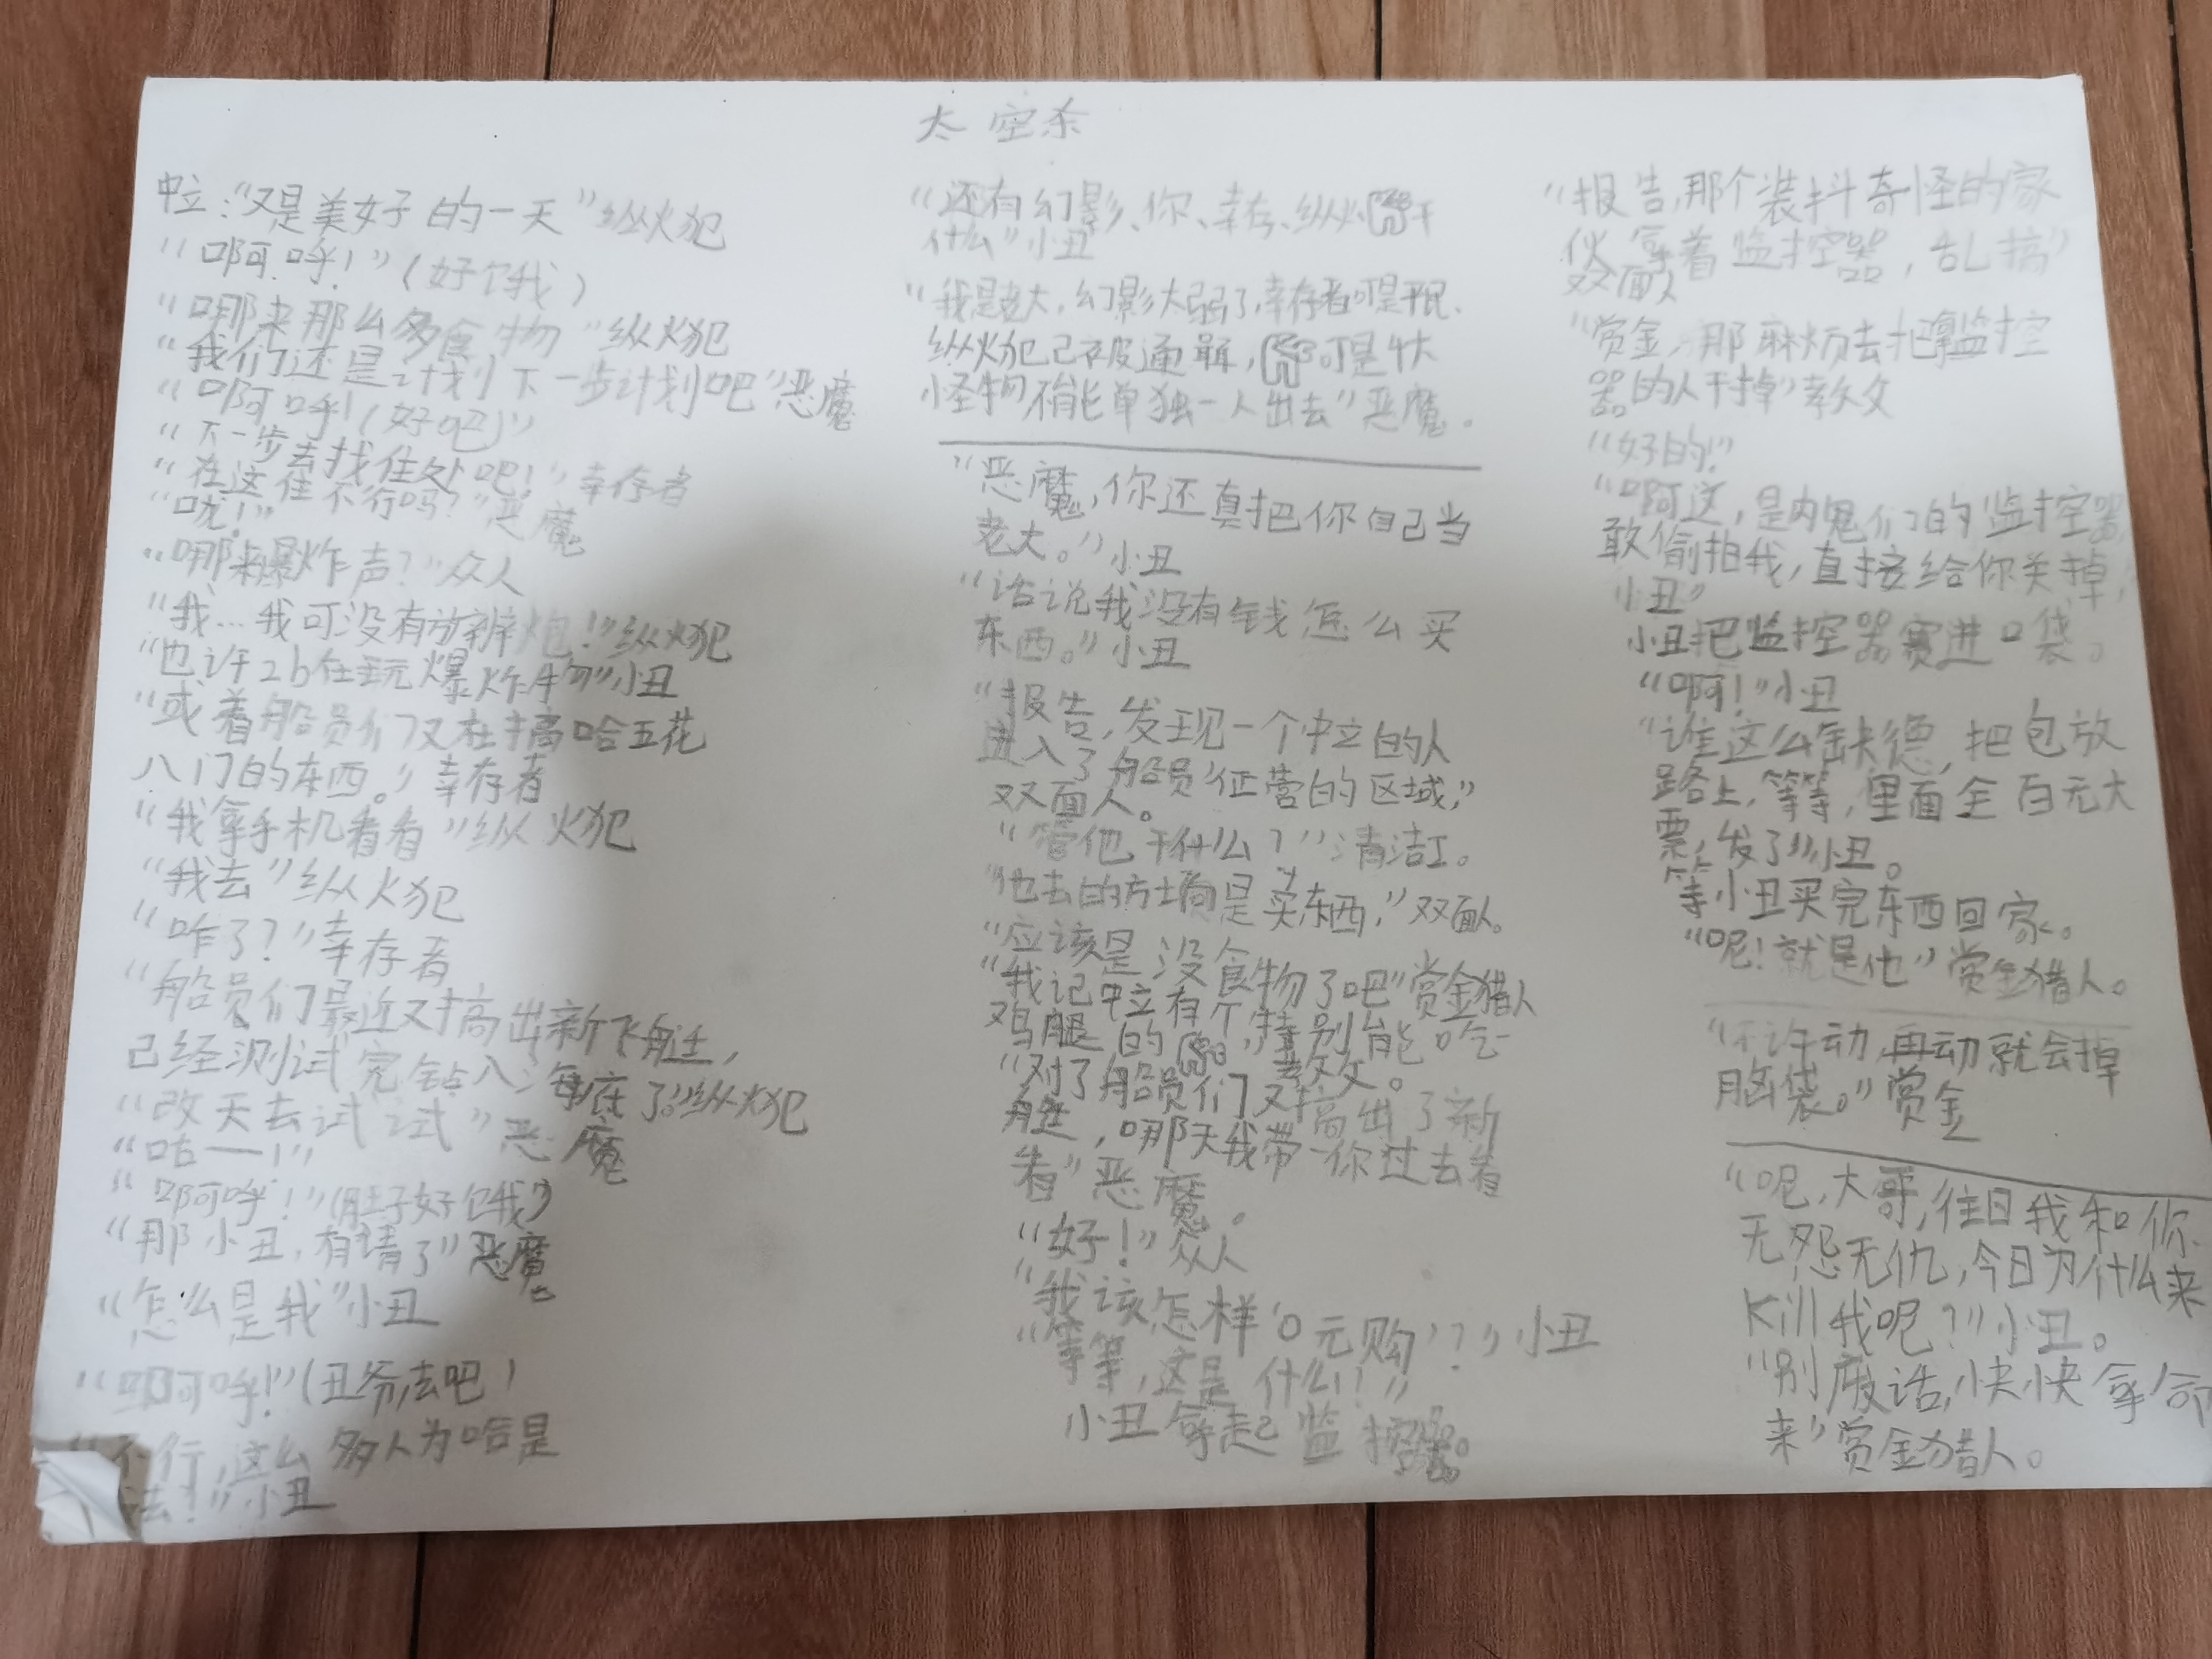 太空杀
中立:“又是美好的一天”纵火犯
“啊呼!”(好饿)
“哪来那么多食物”纵火犯
“我们还是计划下一步计划吧”恶魔
“啊呼!(好吧)”
“下一步去找住处吧!”幸存者
“在这住不行吗?”恶魔
“咣!”
“哪来爆炸声?”众人
“我…我可没有放辨炮!”纵火犯
“也许2b在玩爆炸物”小丑
“或着船员们又在搞啥五花
八门的东西。”幸存者
“我拿手机看看”纵火犯
“我去”纵火犯
“咋了?”幸存者
“船员们最近又搞出新飞船,
已经测试完钻入海底了。”纵火犯
“改天去试试”恶魔
“咕——!”
“啊呼!”(肚子好饿)
“那小丑,有请了”恶魔
“怎么是我”小丑
“啊呼!”(丑爷,去吧)
“不行,这么多人为啥是
去!”小丑
“还有幻影、你、幸存、纵火干
什么”小丑
“我是老大,幻影太弱了,幸存者可是平民、
纵火犯已被通缉,可是个大
怪物不能单独一人出去”恶魔。
“恶魔,你还真把你自己当
老大。”小丑
“话说我没有钱怎么买
东西。”小丑
“报告,发现一个中立的人
进入了船员征营的区域,”
双面人。
“管他干什么?”清洁工。
“他去的方土向是卖东西,”双面人。
“应该是没食物了吧”赏金猎人
“我记中立有个特别能吃
鸡腿的”教父。
“对了船员们又搞出了新
船,哪天我带你过去看
看”恶魔。
“好!”众人
“我该怎样‘0元购’?”小丑
“等等,这是什么!”
小丑拿起监控器。
“报告,那个装抖奇怪的家
伙拿着监控器,乱搞”
双面人
“赏金,那麻烦去把拿监控
器的人干掉”教父
“好的!”
“啊这,是内鬼们的监控器,
敢偷拍我,直接给你关掉,
小丑”
小丑把监控器赛进口袋。
“啊!”小丑
“谁这么缺德,把包放
路上,等等,里面全百元大
票,发了”小丑。
等小丑买完东西回家。
“呢!就是他”赏金猎人。
“不许动,再动就会掉
脑袋。”赏金
“呢,大哥,往日我和你
无怨无仇,今日为什么来
Kill我呢?”小丑。
“别废话,快快拿命
来”赏金猎人。